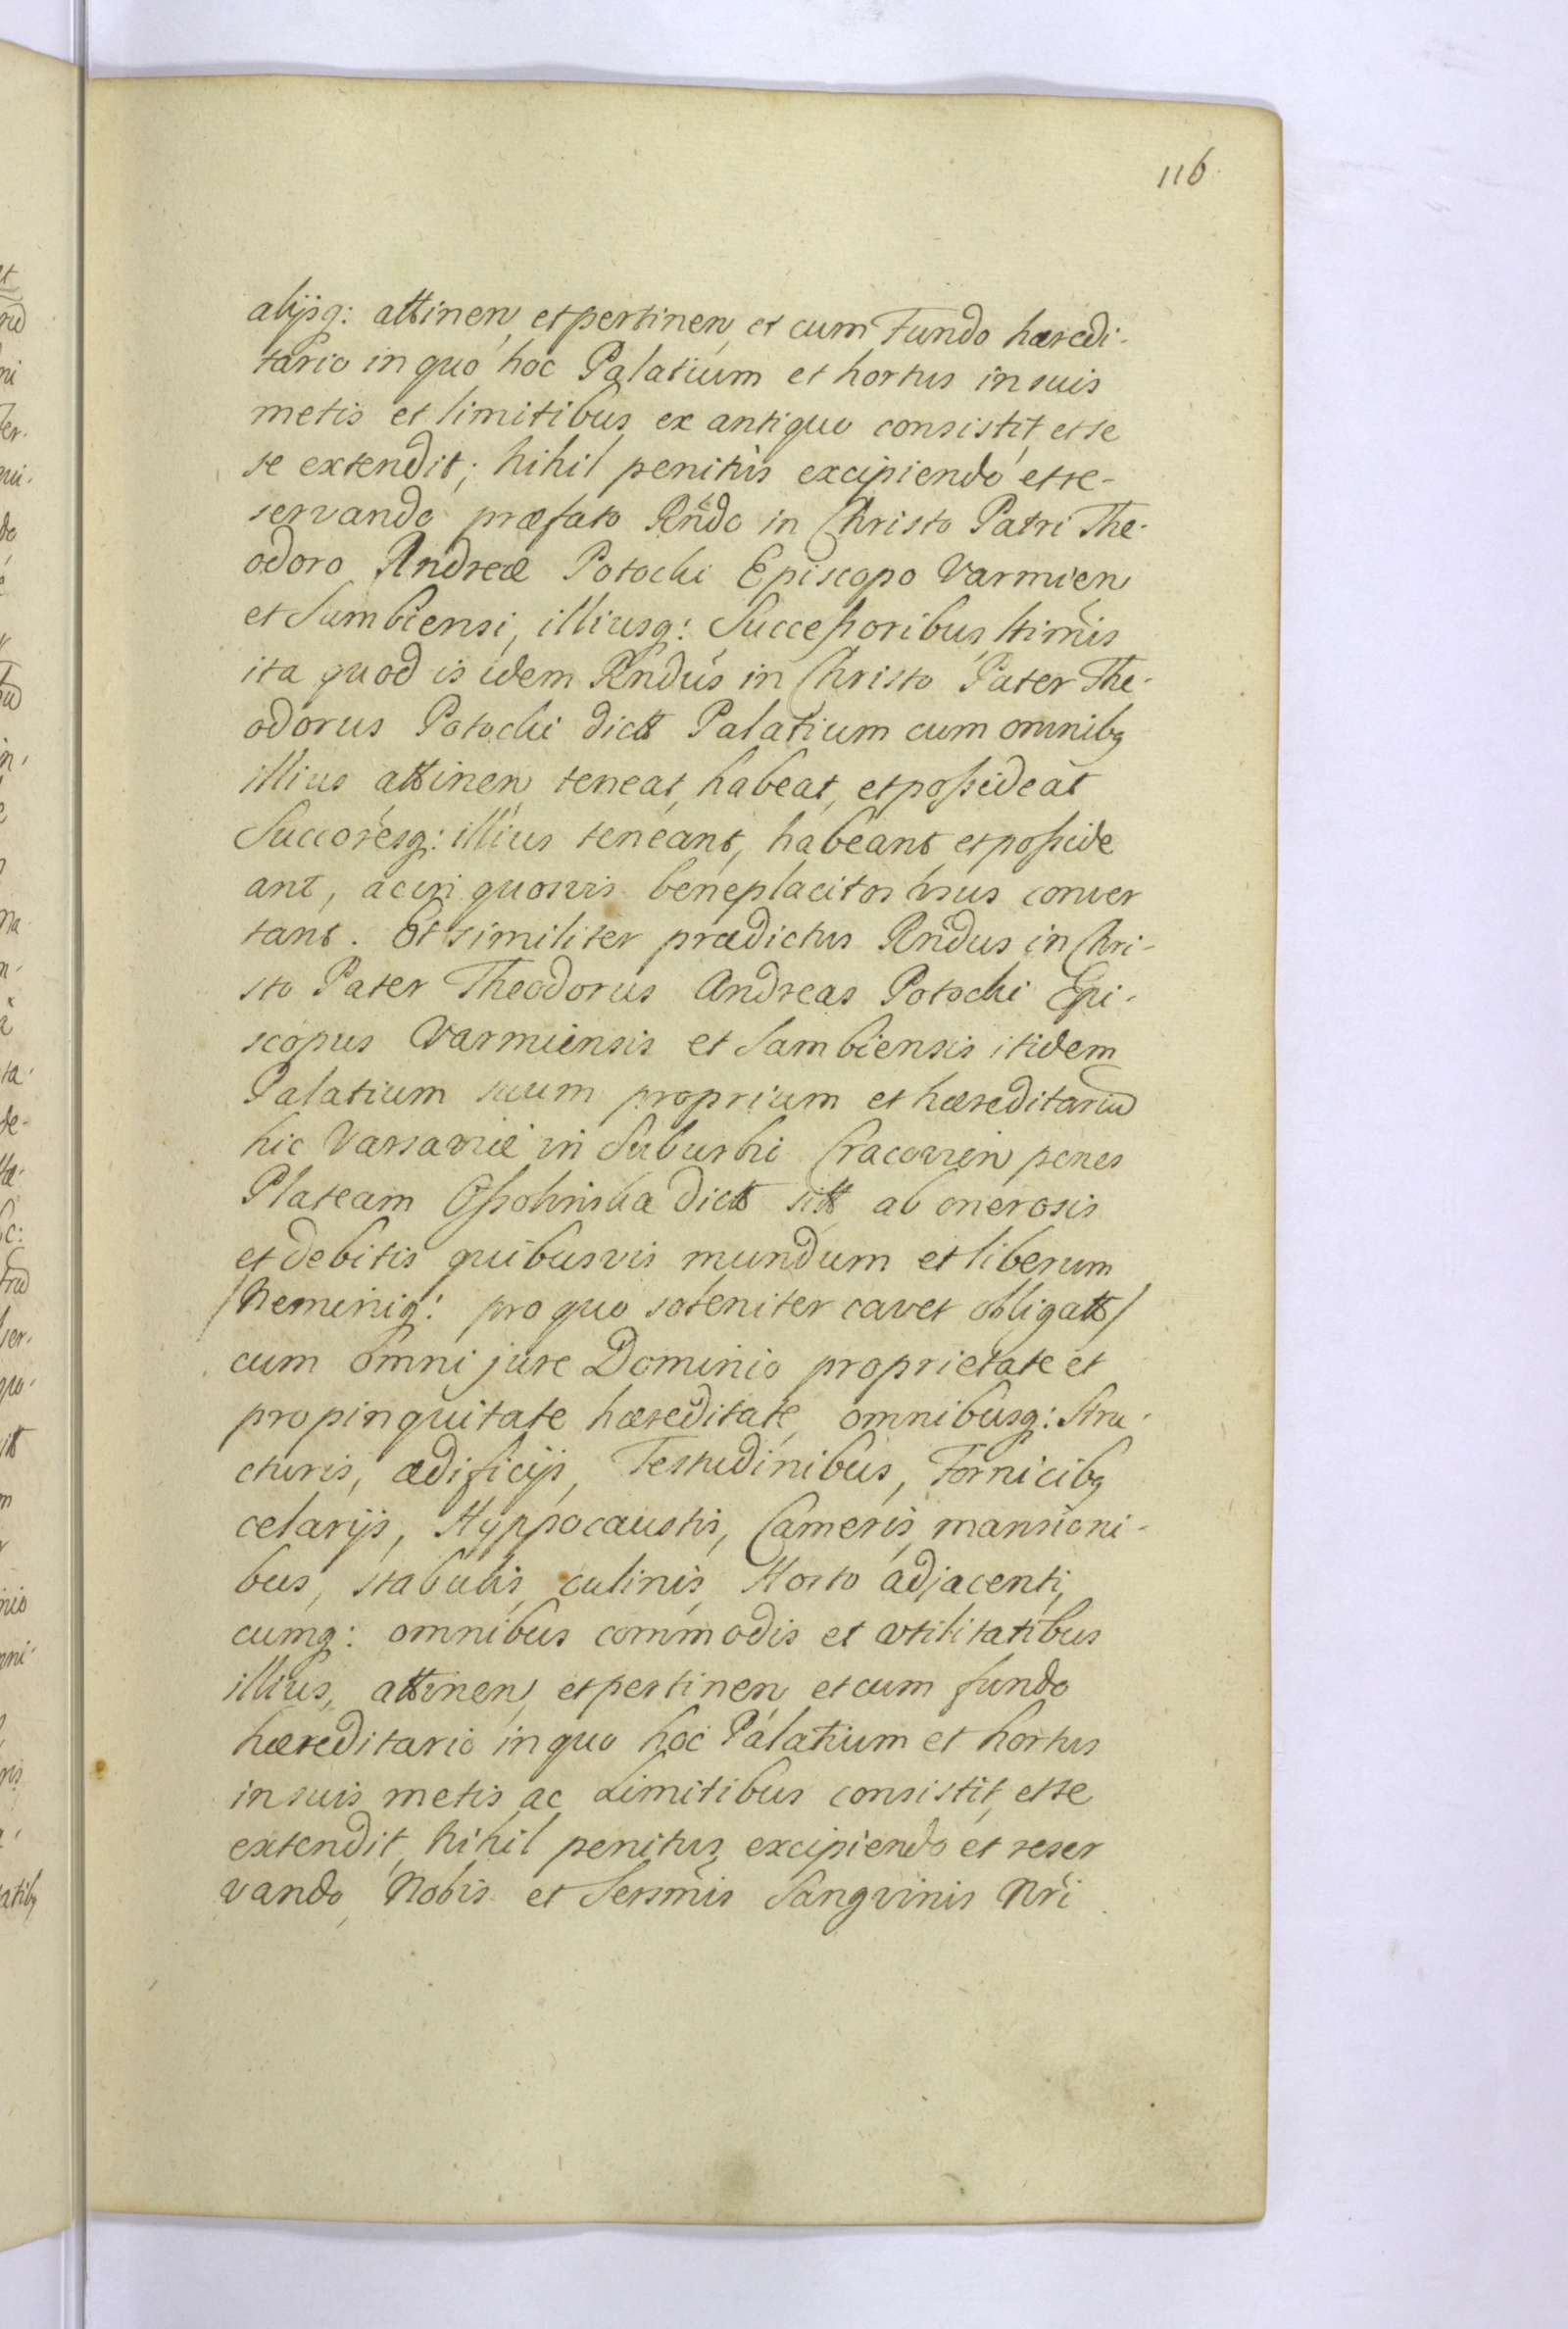 116.
alijsq: attinen, et pertinen, et cum Fundo hæredi-
tario in quo hoc Palatium et hortus in suis
metis et limitibus ex antiquo consistit, et se
se extendit; Nihil penitùs excipiendo et re-
servando præfato Rndo in Christo Patri The-
odoro Andreæ Potocki Episcopo Varmien,
et Sambiensi, illiusq: Successoribus ltimis
ita quod is idem Rndus in Christo Pater The-
odorus Potocki dictt Palatium cum omnibq
illius attinen, teneat, habeat, et possideat
Succoresq: illius teneant, habeant et posside
ant, ac in quosvis beneplacitos usus conver
tant. Et similiter prædictus Rndus in Chri-
sto Pater Theodorus Andreas Potocki Epi-
scopus Varmiensis et Sambiensis itidem
Palatium suum proprium et hæreditariū
hic Varsaviæ in Suburbio Cracovien, penes
Plateam Ossolinska dictt sitt ab onerosis
et debitis quibusvis mundum et liberum
/Neminiq: pro quo soleniter cavet obligatt/
cum omni jure Dominio proprietate et
propinquitate hæreditate, omnibusq: Stru-
cturis, ædificijs, Testudinibus, Fornicibq
celarijs, Hyppocaustis, Cameris, mansioni-
bus, stabulis, culinis, Horto adjacenti,
cumq: omnibus commodis et vtilitatibus
illius, attinen, et pertinen, et cum fundo
hæreditario in quo hoc Palatium et hortus
in suis metis ac Limitibus consistit, et se
extendit, Nihil penitus excipiendo et reser
vando, Nobis et Sersmis Sangvinis Nri